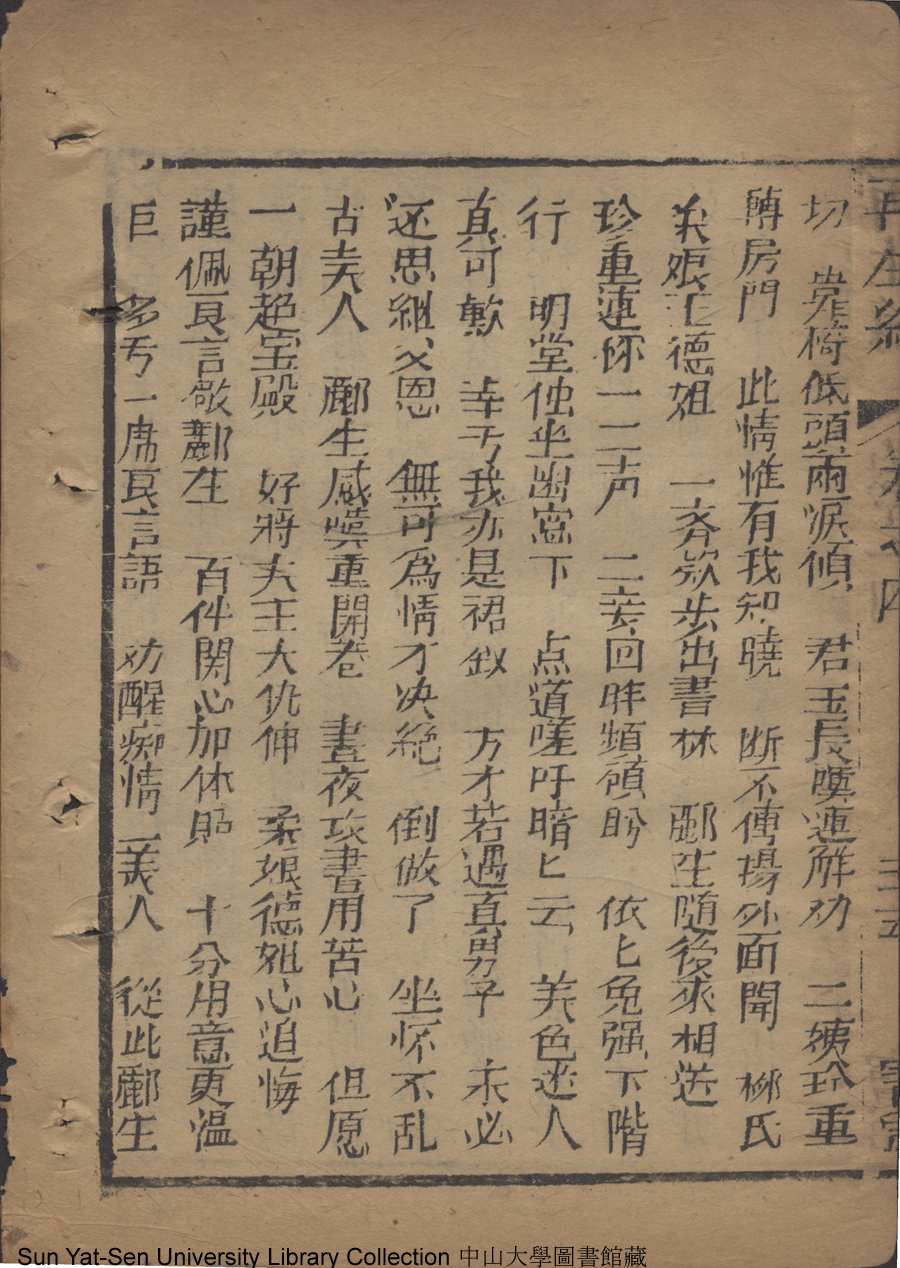 再生緣 卷之四
切 靠椅低頭兩淚傾 君玉長嘆連解劝 二姨珍重
轉房門 此情惟有我知曉 断不傳揚外面聞 柳氏
柔娘王德姐 一齐欬步出書林 郦生隨後來相送
珍重連称一二声 二妾回眸頻頋盼 依匕免强下階
行 明堂他坐出窓下 点道嗟吁暗匕云 美色迷人
真可歎 幸亏我亦是裙釵 方才若遇真男子 未必
还思継父恩 無可為情才决絶 倒做了 坐怀不乱
古美人 郦生感嘆重開卷 晝夜攻書用苦心 但愿
一朝超宝殿 好將夫主大仇伸 柔娘德姐心追悔
謹佩良言敬酈生 百件関心加体贴 十分用意更温
巨 多亏一席良言語 劝醒痴情二美人 從此郦生
Sun Yat-Sen University Library Collection 中山大學圖書館藏